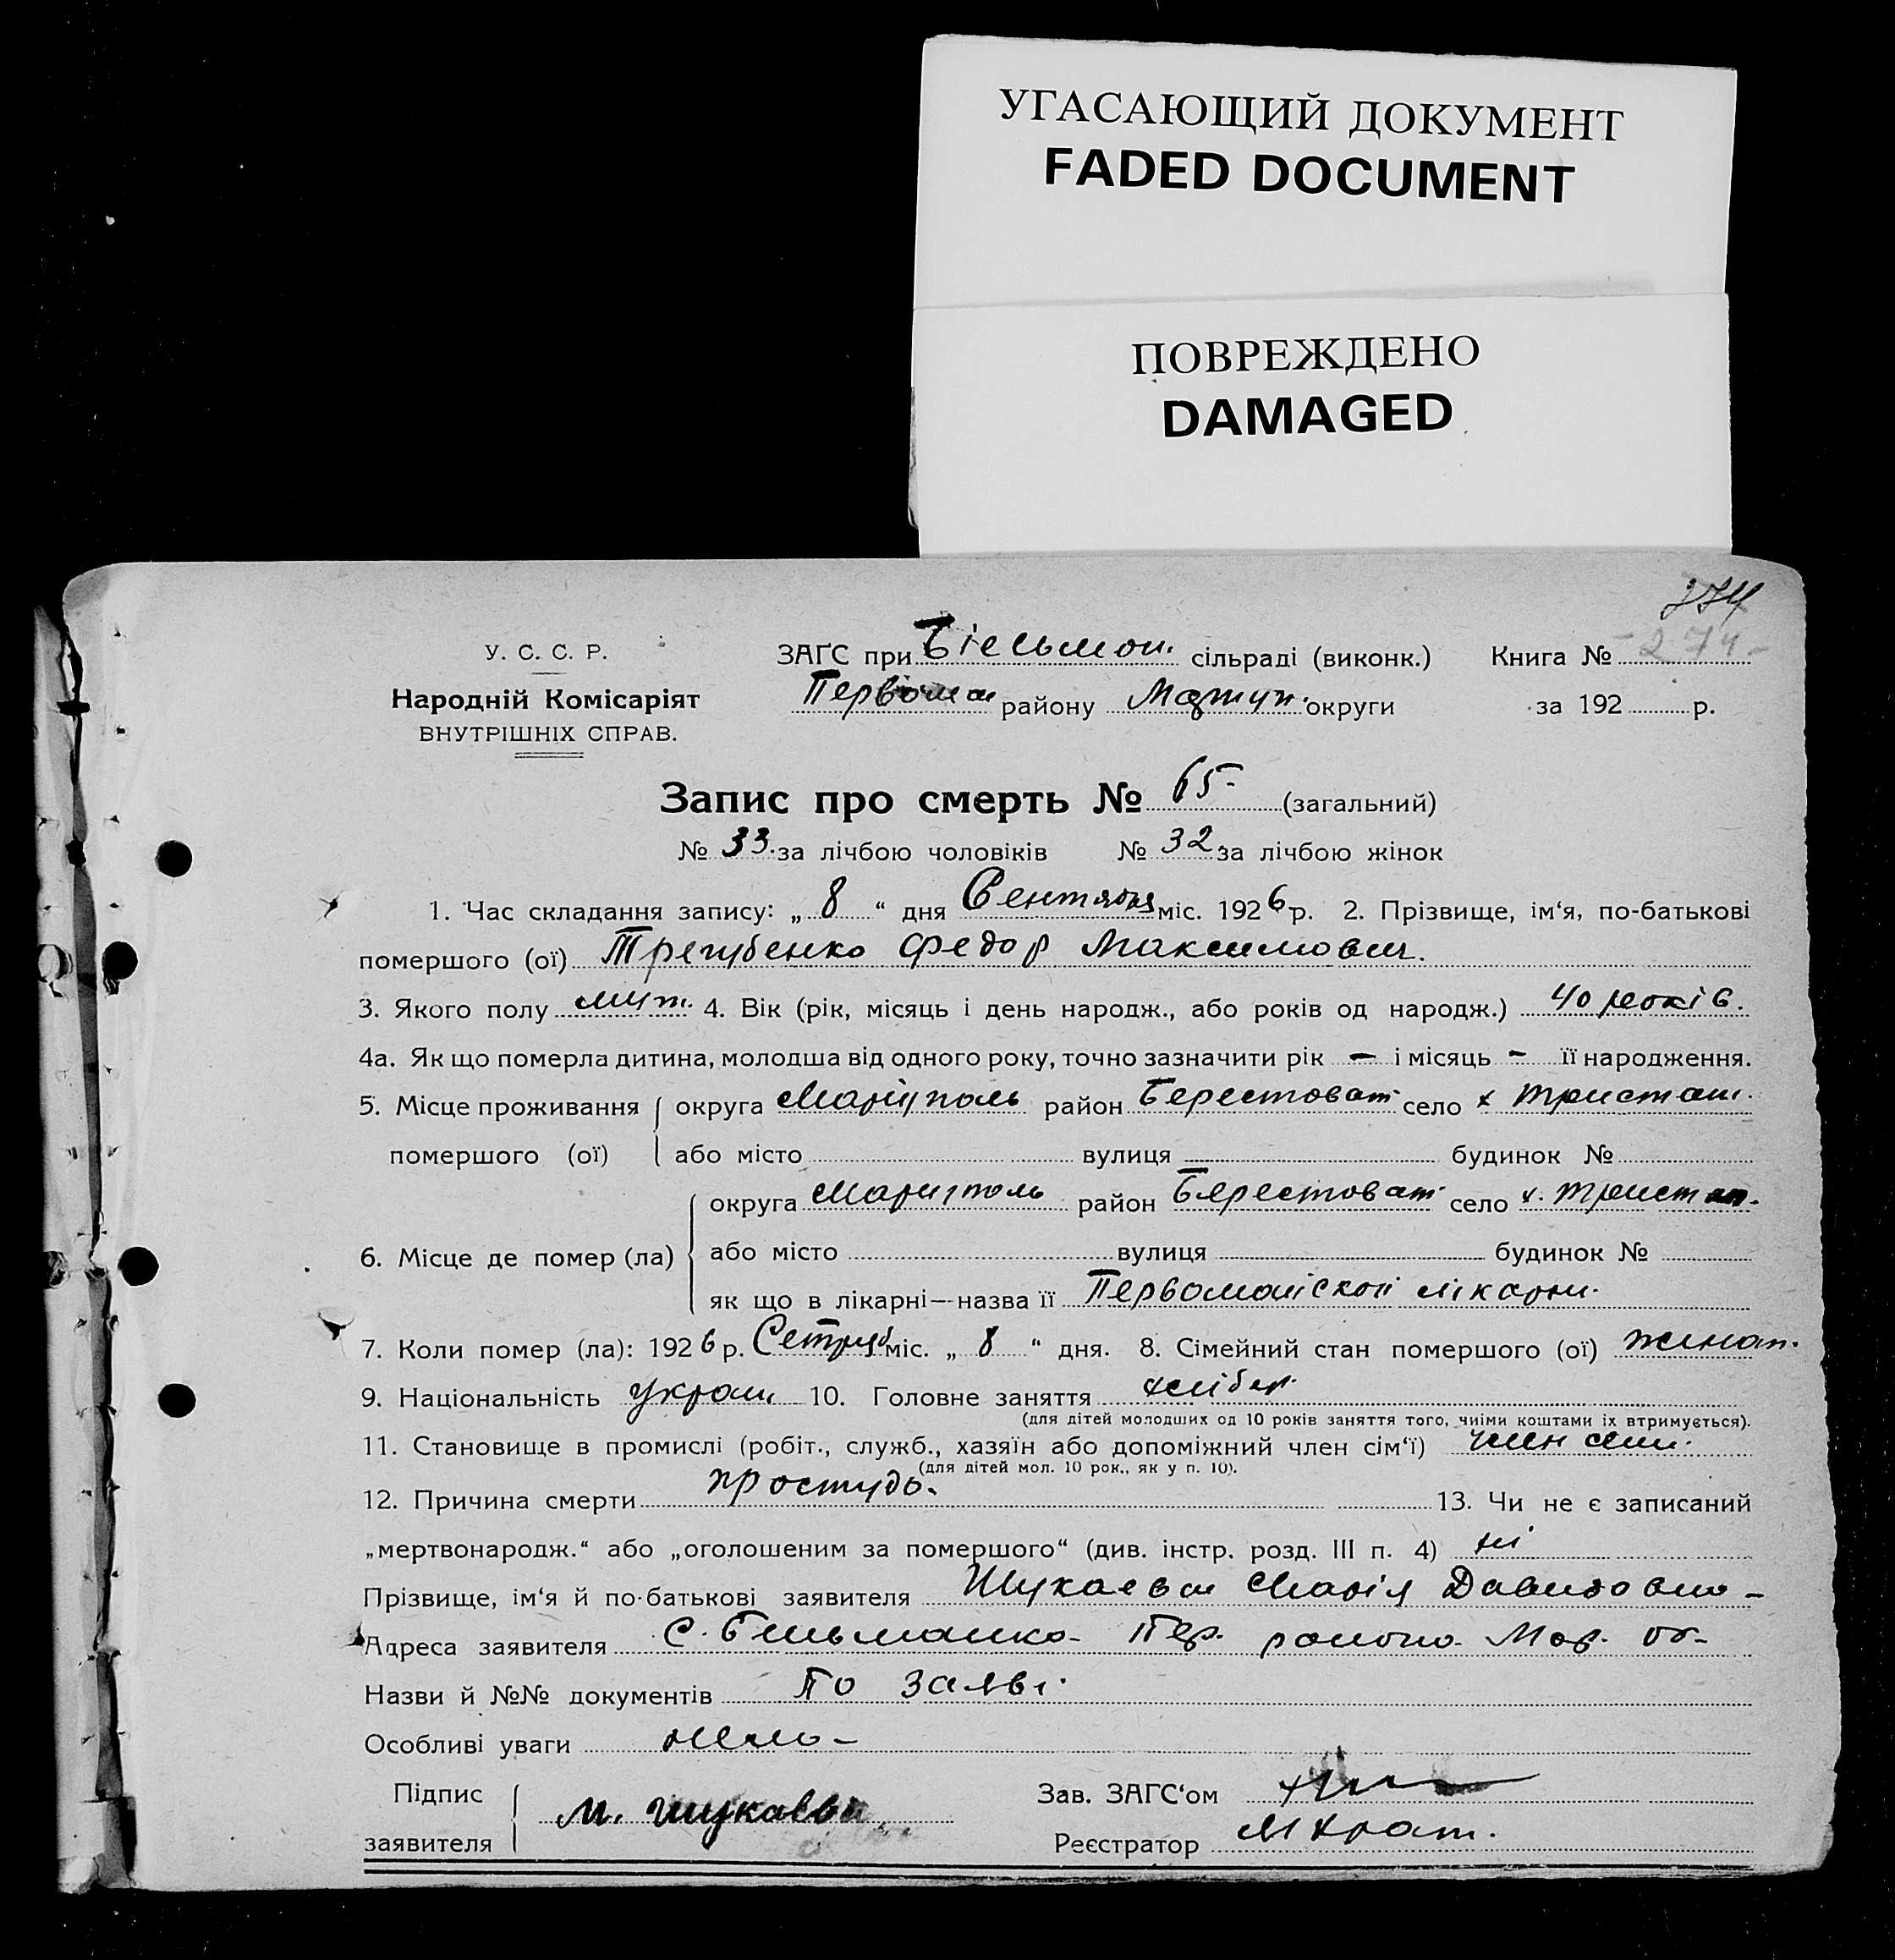 УГАСАЮЩИЙ ДОКУМЕНТ
FADED DOCUMENT
ПОВРЕЖДЕНО
DAMAGED
274
У. С. С. Р. ЗАҐС при Більман. сільраді (виконк.) Книга № -274-
Народній Комісаріят Первома району округи за 192 р.
ВНУТРІШНІХ СПРАВ.
Запис про смерть № 65- (загальний)
№ 33. за лічбою чоловіків № 32. за лічбою жінок
1. Час складання запису: „ 8 “ дня Сентября міс. 1926 р. 2. Прізвище, ім‘я, по-батькові
помершого (ої) Трегубенко Федор Максимович.
3. Якого полу муж. 4. Вік (рік, місяць і день народж., або років од народж.) 40 років.
4а. Як що померла дитина, молодша від одного року, точно зазначити рік — і місяць - її народження.
5. Місце проживання округа Маріуполь район Берестоват. село х Тристан.
помершого (ої) або місто вулиця будинок №
округа Мариуполь район Берестоват. село х. Тристан.
6. Місце де помер (ла) або місто вулиця будинок №
як що в лікарні—назва її Первомайской лікарни.
7. Коли помер (ла): 1926 р. міс. „ 8 “ дня. 8. Сімейний стан помершого (ої) жинат.
9. Національність украин 10. Головне заняття хлібор.
(для дітей молодших од 10 років заняття того, чиїми коштами їх втримується).
11. Становище в промислі (робіт., служб., хазяїн або допоміжний член сім‘ї) член сем.
(для дітей мол. 10 рок., як у п. 10).
12. Причина смерти простудо. 13. Чи не є записаний
„мертвонародж.“ або „оголошеним за помершого“ (див. інстр. розд. III п. 4) ні
Прізвище, ім‘я й по-батькові заявителя Шукаева Марія Давидовна -
Адреса заявителя С. Бельманка- Пер. району Мар. ок-
Назви й №№ документів По заяві.
Особливі уваги нема -
Підпис Зав. ЗАГС‘ом
заявителя М. Шукаева Реєстратор